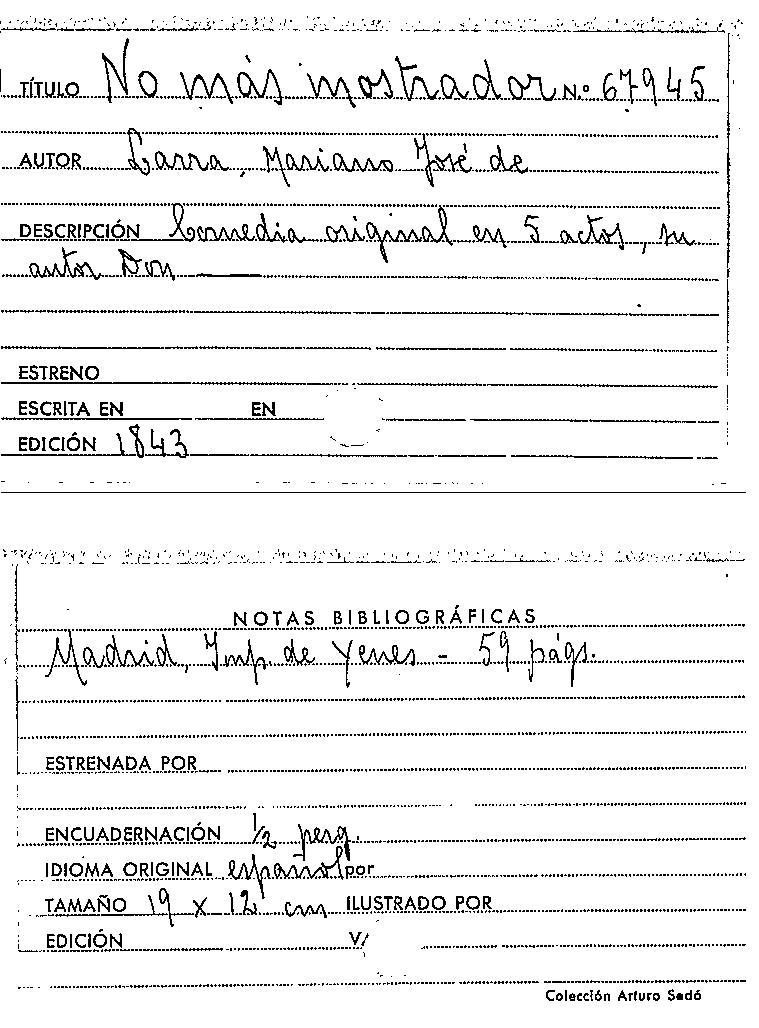 TÍTULO No más mostrador N.º 67945
AUTOR Larra, Mariano José de
DESCRIPCIÓN Comedia original en 5 actos, su
autor Don ———
ESTRENO
ESCRITA EN EN
EDICIÓN 1843
NOTAS BIBLIOGRÁFICAS
Madrid, Imp. de Yenes - 59 págs.
ESTRENADA POR
ENCUADERNACIÓN ½ perg.
IDIOMA ORIGINAL español por
TAMAÑO 19 x 12 cm ILUSTRADO POR
EDICIÓN V/
Colección Arturo Sedó